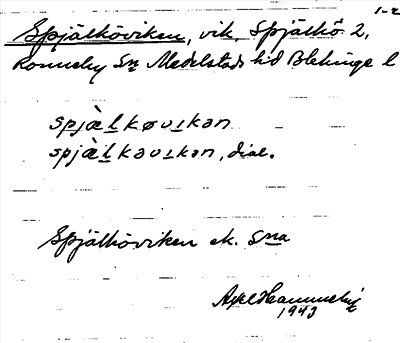 1-2
Spjälköviken, vik, Spjälkö 2,
Ronneby Sn Medelstads hd Blekinge l
spjὰlkøvıkən
spjὰlkəvıkən, dial.
Spjälköviken ek. Sna
Axel
1943